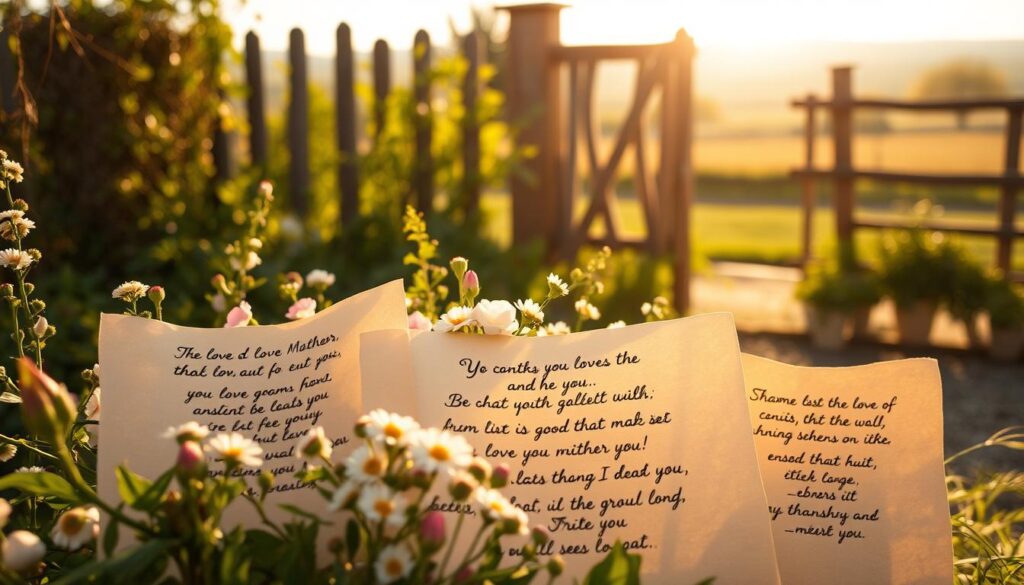 The love d love Mathers,
that lov, aut fo eut you,
you love goams fiont
anslint be leats you
let fee young
but lave
Ye canths you loves the
and he you..
Be chat yoith gallett with;
frum list is good that mak set
love you mither you!
.lats thang I dead you,
at, uil the groul long,
Trite you
ull sees lo oat..
Shawne last the love of
cenuis, tht the wall,
hning schens on itke.
ensed that huit,
itlek large,
–ebners itt
y thanshy and
–meist you.